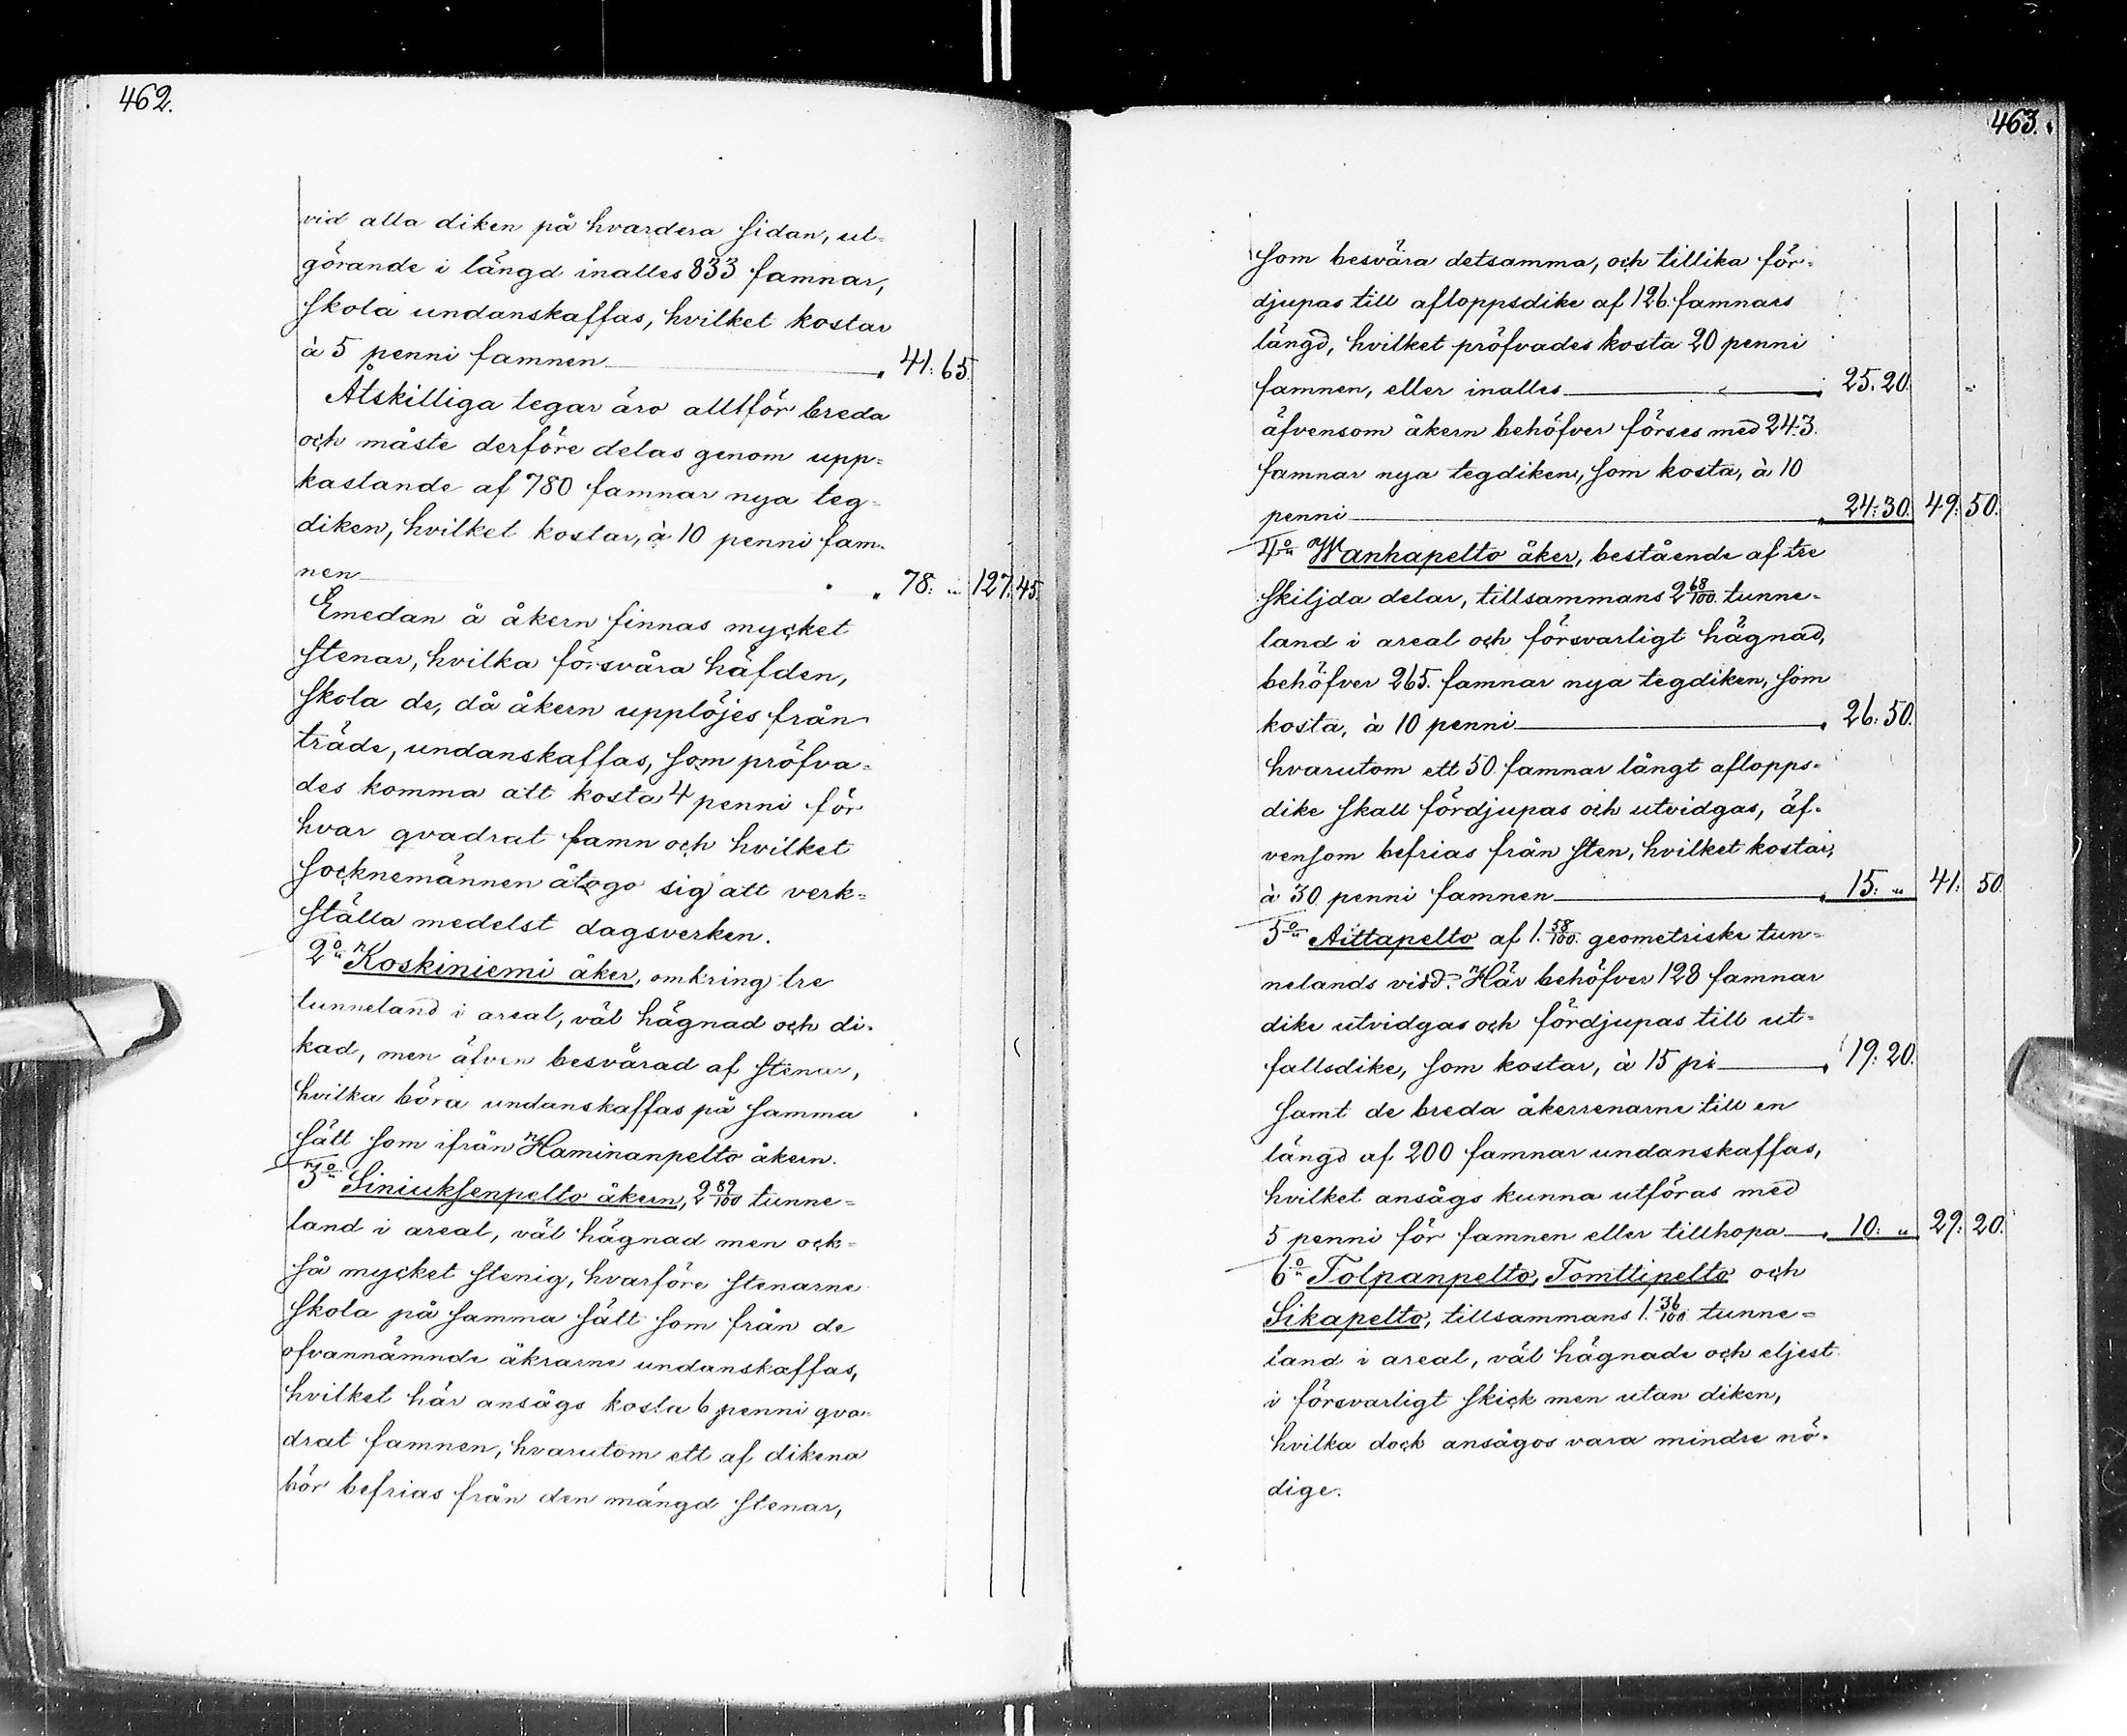 462.
vid alla diken på hvardera sidan, ut-
görande i längd inalles 833 famnar,
skola undanskaffas, hvilket kostar
à 5 penni famnen „ 41: 65.
Åtskilliga tegar äro alltför breda
och måste derföre delas genom upp-
kastande af 780 famnar nya teg-
diken, hvilket kostar, à 10 penni fam-
nen „ 78: „ 127: 45.
Emedan å åkern finnas mycket
stenar, hvilka försvåra häfden,
skola de, då åkern upplöjes från
träde, undanskaffas, som pröfva-
des komma att kosta 4 penni för
hvar qvadrat famn och hvilket
socknemännen åtogo sig att verk-
ställa medelst dagsverken.
2o Koskiniemi åker, omkring tre
tunneland i areal, väl hägnad och di-
kad, men äfven besvärad af stenar,
hvilka böra undanskaffas på samma
sätt som ifrån Haminanpelto åkern.
3o Siniuksenpelto åkern, 2 89/100 tunne-
land i areal, väl hägnad men ock-
så mycket stenig, hvarföre stenarne
skola på samma sätt som från de
ofvannämnde åkrarne undanskaffas,
hvilket här ansågs kosta 6 penni qva-
drat famnen, hvarutom ett af dikena
bör befrias från den mängd stenar,
463.
som besvära detsamma, och tillika för-
djupas till afloppsdike af 126 famnars
längd, hvilket pröfvades kosta 20 penni
famnen, eller inalles „ 25. 20.
äfvensom åkern behöfver förses med 243
famnar nya tegdiken, som kosta, à 10
penni „ 24: 30. 49: 50.
4o Wanhapelto åker, bestående af tre
skiljda delar, tillsammans 2 68/100 tunne-
land i areal och försvarligt hägnad,
behöfver 265 famnar nya tegdiken, som
kosta, à 10 penni „ 26: 50.
hvarutom ett 50 famnar långt aflopps-
dike skall fördjupas och utvidgas, äf-
vensom befrias från sten, hvilket kostar,
à 30 penni famnen „ 15: „ 41: 50.
5o Aittapelto af 1. 58/100 geometriske tun-
nelands vidd. Här behöfver 128 famnar
dike utvidgas och fördjupas till ut-
fallsdike, som kostar, à 15 pi „ 19: 20.
samt de breda åkerrenarne till en
längd af 200 famnar undanskaffas,
hvilket ansågs kunna utföras med
5 penni för famnen eller tillhopa „ 10: „ 29: 20.
6o Tolpanpelto, Tomttipelto och
Sikapelto, tillsammans 1. 36/100 tunne-
land i areal, väl hägnade och eljest
i försvarligt skick men utan diken,
hvilka dock ansågos vara mindre nö-
dige.